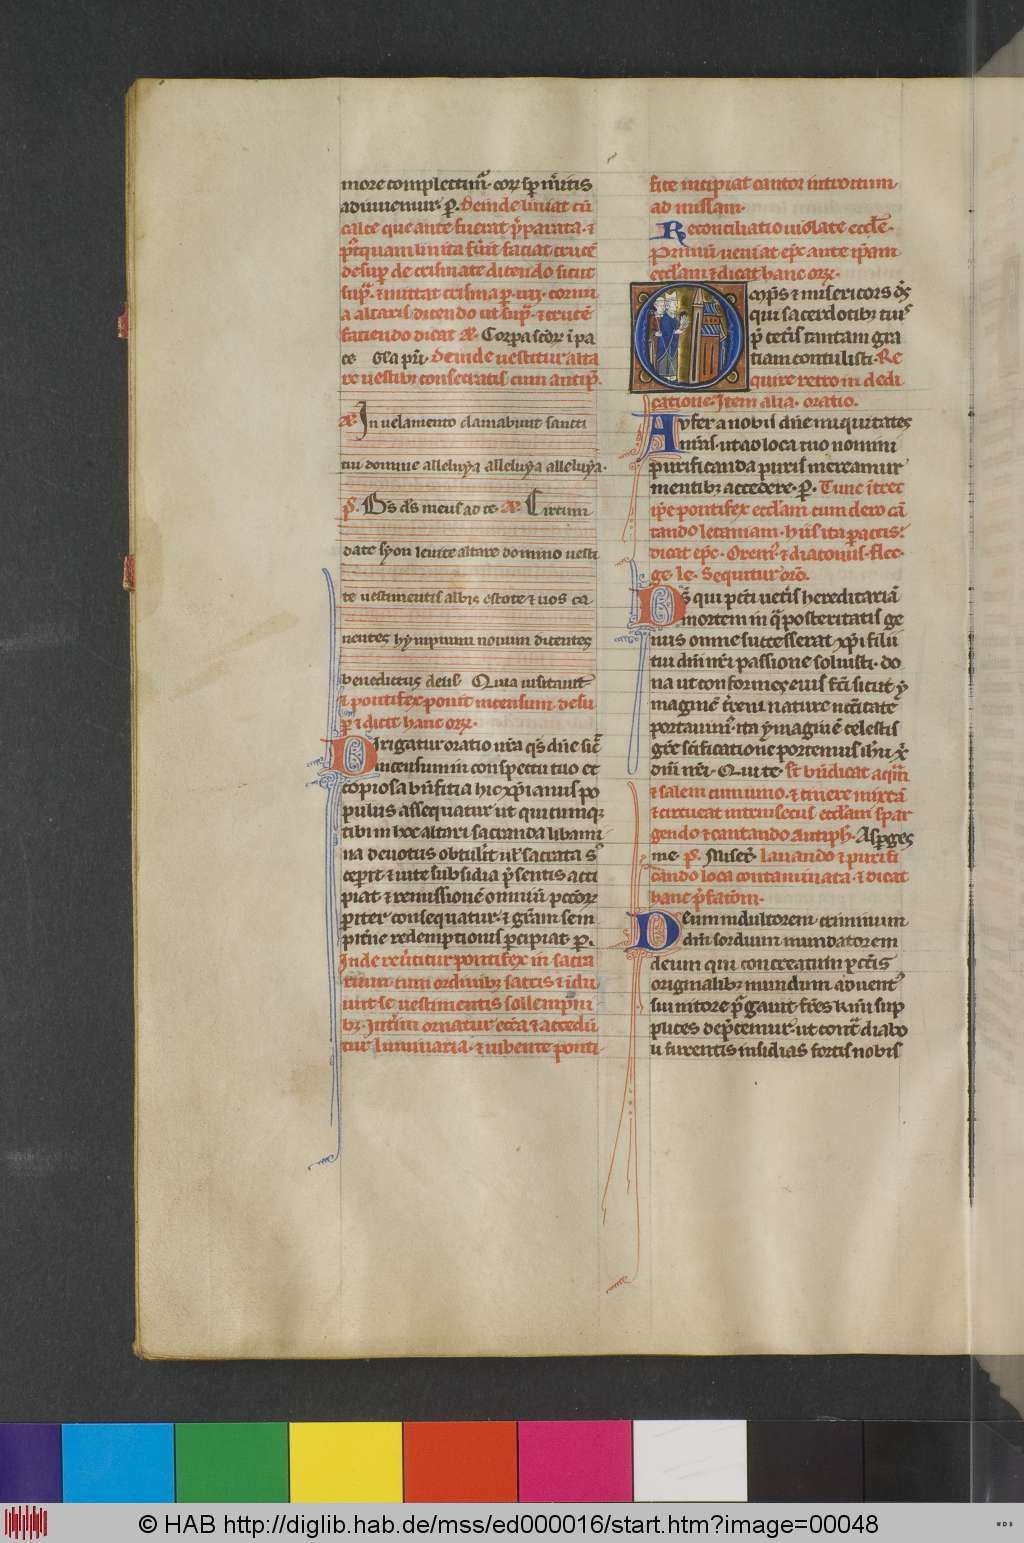 more complectimur. eorum semper meritis
adiuuemur. per. Deinde liniat cum
calce que ante fuerat preparata. et
postquam linita fuerit faciat crucem
desuper de crismate dicendo sicut
supra. et mittat crisma per iiii. cornu
a altaris dicendo ut supra. et crucem
faciendo dicat an. Corpora sanctorum in pa
ce Gloria patri. deinde uestitur alta
re uestibus consecratis cum antiphona.
an. In uelamento clamabunt sancti
tui domine alleluya alleluya alleluya.
ps. Deus deus meus ad te. an. Circum
date syon leuite altare domino uesti
te uestimentis albis estote et uos ca
nentes hympnum nouum dicentes
benedictus deus. Quia uisitauit
et pontifex ponit incensum desu
per et dicit hanc or.
Dirigatur oratio nostra quesumus domine sicut
incensum in conspectu tuo et
copiosa beneficia hic xpianus po
pulus assequatur ut quicumque
tibi in hoc altari sacranda libami
na deuotus obtulerit uel sacrata sus
ceperit et uite subsidia presentis acci
piat et remissionem omnium peccatorum
pariter consequatur. et gratiam sem
piterne redemptionis percipiat. per.
Inde reuertitur pontifex in sacra
rium cum ordinibus sacris et indu
unt se uestimentis sollempni
bus. Interim ornatur eccla et accendun
tur luminaria. et iubente ponti
fice incipiat cantor introitum
ad missam.
Reconciliatio uiolate ecclie.
Primum ueniat eps ante ipsam
eccliam et dicat hanc or.
Omps et misericors ds
qui sacerdotibus tuis
pre ceteris tantam gra
tiam contulisti. Re
quire retro in dedi
catione. Item alia. oratio.
Aufer a nobis dne iniquitates
nostras. ut ad loca tuo nomini
purificanda puris mereamur
mentibus accedere. per. Tunc intret
ipse pontifex eccliam cum clero can
tando letaniam. Hiis ita peractis.
dicat eps. Oremus. et diaconus. Flec
ge. le. Sequitur oro.
Ds qui peccati ueteris hereditariam
mortem in qua posteritatis ge
nus omne successerat xpi filii
tui domini nostri passione soluisti. do
na ut conformes eius facti sicut y
maginem terreni nature necessitate
portauimus. ita ymaginem celestis
gratie sanctificatione portemus ihu xpi
domini nostri. Qui te. post benedicat aquam
et salem cum uino. et cinere mixtam
et circueat intrinsecus eccliam spar
gendo et cantando antiph. Asperges
me. ps. Miserere. lauando et purifi
cando loca contaminata. et dicat
hanc prefationem.
Deum indultorem criminum
deum sordium mundatorem
deum qui concreatum peccatis
originalibus mundum aduentus
sui nitore purgauit fratres karissimi sup
plices deprecemur. ut contra diabo
li furentis insidias fortis nobis
© HAB http://diglib.hab.de/mss/ed000016/start.htm?image=00048